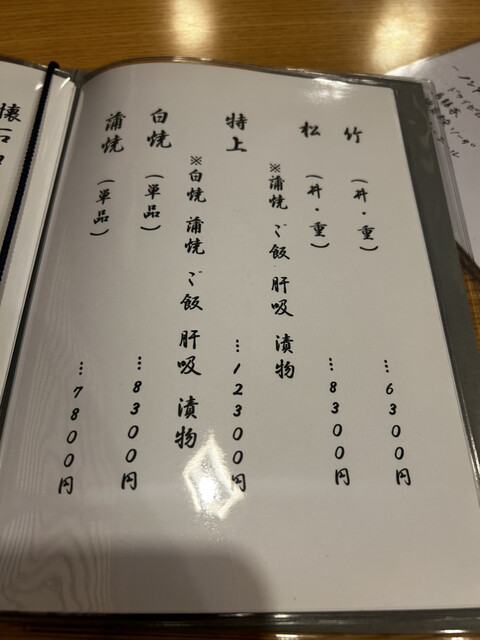 竹 (丼・重) …6300円
松 (丼・重) …8300円
※蒲焼 ご飯 肝吸 漬物
特上 …12300円
※白焼 蒲焼 ご飯 肝吸 漬物
白焼 (単品) …8300円
蒲焼 (単品) …7800円
懐石